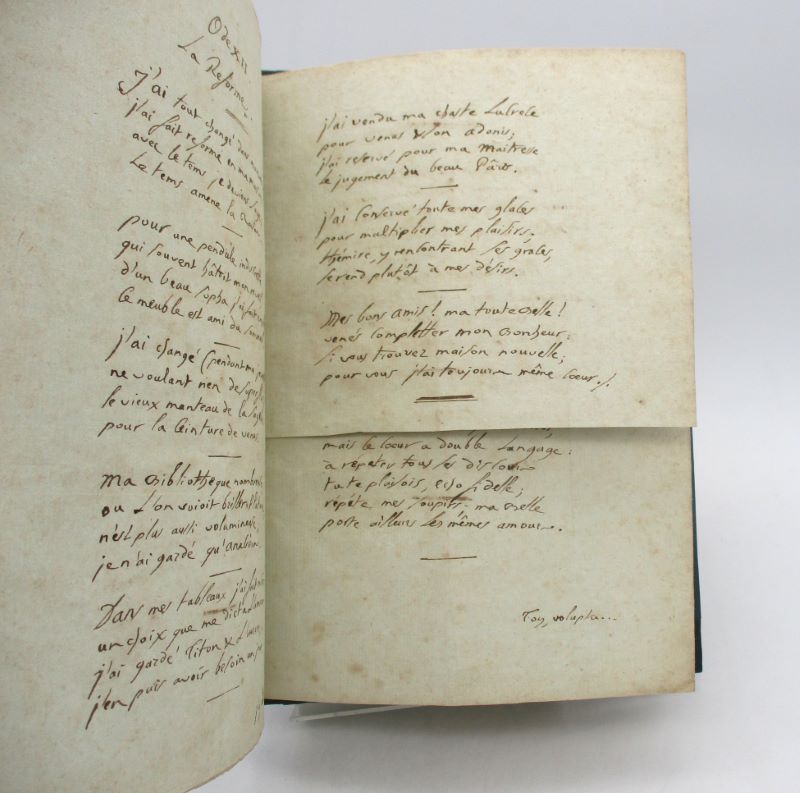 Ode XII
La Reforme.
j'ai tout changé dans
j'ai fait reforme en ma
avec le tems je deviens sage
Le tems amene la
pour une pendule
qui souvent hâtoit mon
d'un beau sopha j'ai fait
ce meuble est ami du
j'ai changé (pendant ma
ne voulant rien de
le vieux manteau de la
pour la ceinture de venus
ma Bibliotheque
ou L'on voioit
n'est plus aussi volumineuse,
je n'ai gardé qu'anacréon
Dans mes tableaux j'ai fait
un choix que me
j'ai gardé Titon &
j'en puis avoir besoin un
j'ai vendu ma chaste Lucrece
pour venus & son adonis;
j'ai reservé pour ma maitresse
Le jugement du beau Pâris.
j'ai conservé toute mes glaces
pour multiplier mes plaisirs.
thémire, y rencontrant ses graces,
se rend plutôt a mes désirs.
Mes bons amis! ma toute Belle!
venés completter mon Bonheur:
si vous trouvez maison nouvelle;
pour vous j'ai toujours même coeur.
mais le coeur a double Langage:
a répéter tous ses discours
tu te plaisois, echo fidelle;
répéte mes soupirs. ma Belle
porte ailleurs les mêmes amours.
Toy, volupta...